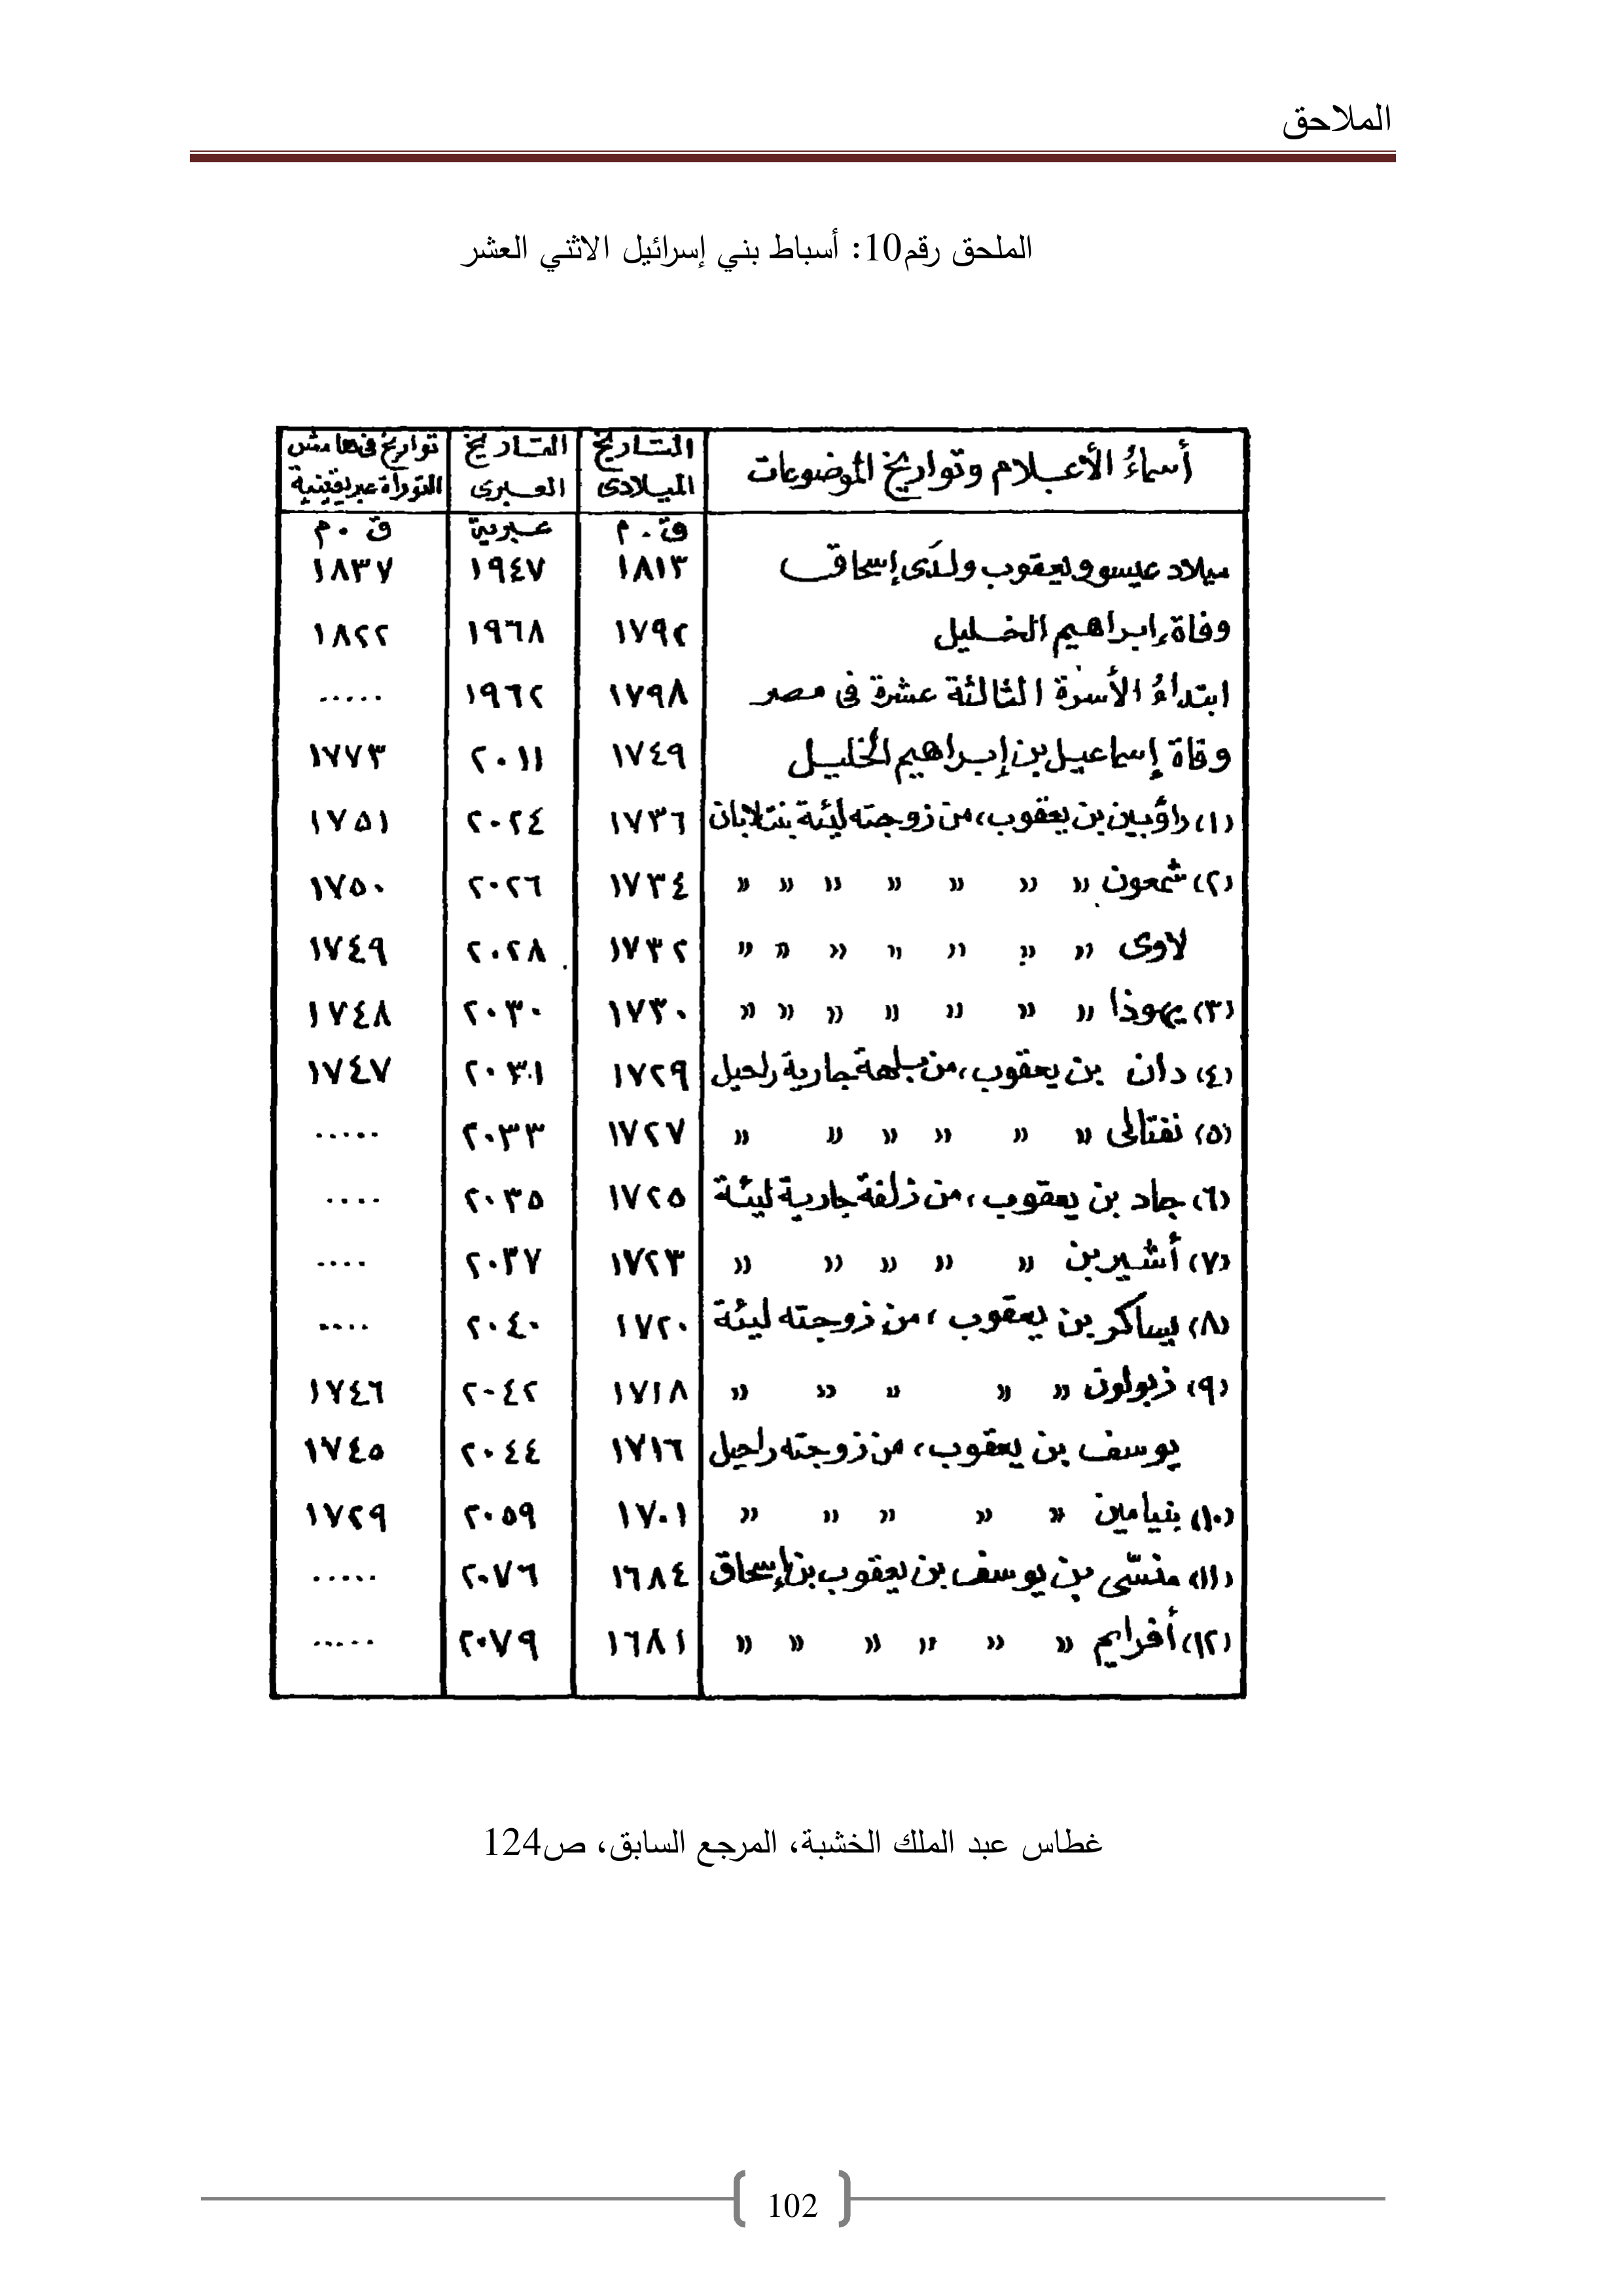 الملاحق
الملحق رقم10: أسباط بني إسرائيل الاثني العشر
أسماءُ الأعلام وتواريخ الموضوعات التاريخ الميلادى التاريخ العبرى تواريخ فى هامش التوراة عبريقينية
ق.م عبرية ق.م
ميلاد عيسو ويعقوب ولدَى إسحاق ١٨١٣ ١٩٤٧ ١٨٣٧
وفاة إبراهيم الخليل ١٧٩٢ ١٩٦٨ ١٨٢٢
ابتداءُ الأسرة الثالثة عشرة فى مصر ١٧٩٨ ١٩٦٢ .....
وفاة إسماعيل بن إبراهيم الخليل ١٧٤٩ ٢٠١١ ١٧٧٣
(١) رأوبين بن يعقوب، من زوجته ليئة بنت لابان ١٧٣٦ ٢٠٢٤ ١٧٥١
(٢) شمعون » » » » » » » ١٧٣٤ ٢٠٢٦ ١٧٥٠
لاوى » » » » » » » ١٧٣٢ ٢٠٢٨ ١٧٤٩
(٣) يهوذا » » » » » » » ١٧٣٠ ٢٠٣٠ ١٧٤٨
(٤) دان بن يعقوب، من بلهة جارية راحيل ١٧٢٩ ٢٠٣١ ١٧٤٧
(٥) نفتالى » » » » » » ١٧٢٧ ٢٠٣٣ .....
(٦) جاد بن يعقوب، من زلفة جارية ليئة ١٧٢٥ ٢٠٣٥ ....
(٧) أشير بن » » » » » ١٧٢٣ ٢٠٣٧ ....
(٨) يساكر بن يعقوب، من زوجته ليئة ١٧٢٠ ٢٠٤٠ ....
(٩) زبولون » » » » » ١٧١٨ ٢٠٤٢ ١٧٤٦
يوسف بن يعقوب، من زوجته راحيل ١٧١٦ ٢٠٤٤ ١٧٤٥
(١٠) بنيامين » » » » » ١٧٠١ ٢٠٥٩ ١٧٢٩
(١١) منسّى بن يوسف بن يعقوب بن إسحاق ١٦٨٤ ٢٠٧٦ .....
(١٢) أفرايم » » » » » » ١٦٨١ ٢٠٧٩ .....
غطاس عبد الملك الخشبة، المرجع السابق، ص124
102